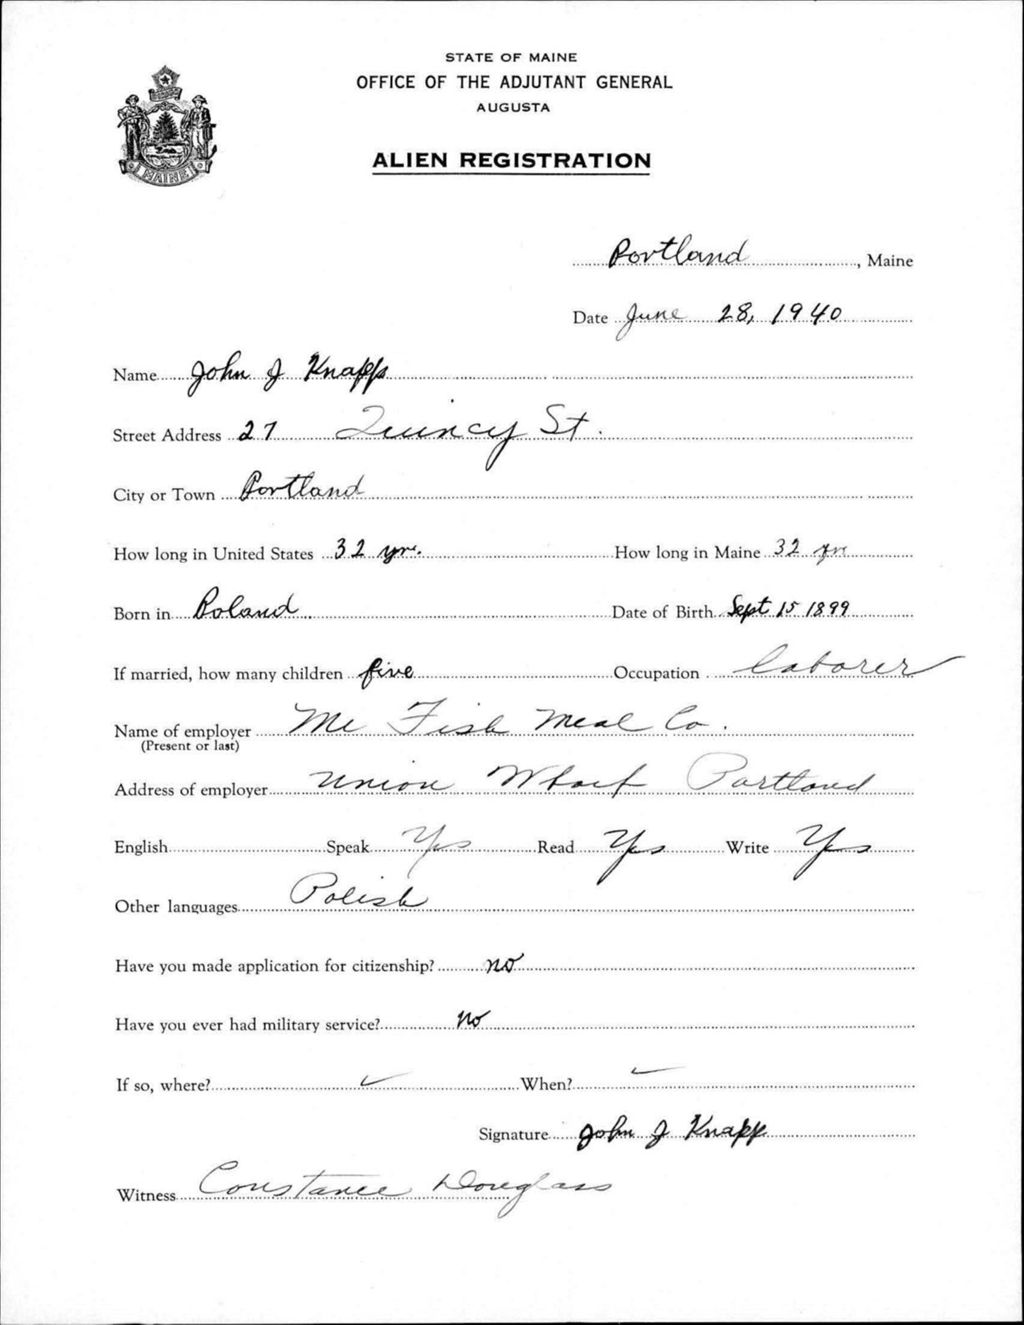 STATE OF MAINE
OFFICE OF THE ADJUTANT GENERAL
AUGUSTA
ALIEN REGISTRATION
MAINE
Portland, Maine
Date June 28, 1940
Name John J Knapp
Street Address 27 Quincy St.
City or Town Portland
How long in United States 32 yrs. How long in Maine 32 yrs
Born in Poland Date of Birth Sept 15 1899
If married, how many children five Occupation laborer
Name of employer Me Fish Meal Co.
(Present or last)
Address of employer Union Wharf Portland
English Speak Yes Read Yes Write Yes
Other languages Polish
Have you made application for citizenship? no
Have you ever had military service? no
If so, where? When?
Signature John J Knapp
Witness Constance Douglass